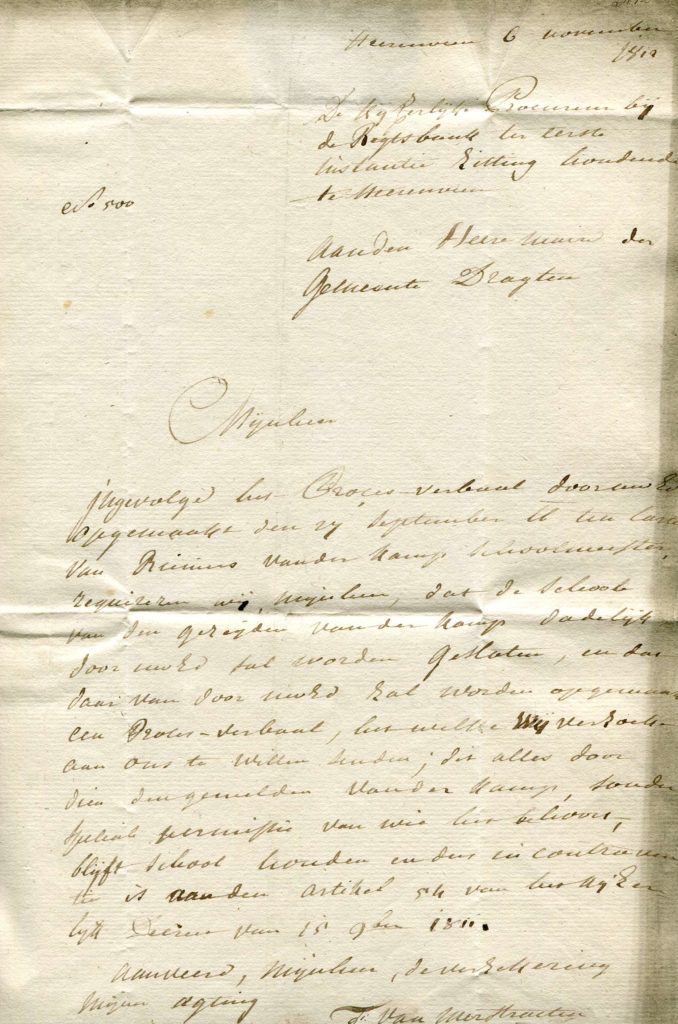 Heerenveen 6 november
1812
De Kyzerlijke Procureur bij
de Regtsbank ter eerste
instantie zitting houdende
te Heerenveen
No 500
Aan den Heere Maire der
Gemeente Dragten
Mijnheer
Ingevolge het Proces-verbaal door uwEd
opgemaakt den 27 September ll ten laste
van Riemers van der Kamp Schoolmeester,
requireren wij, Mijnheer, dat de Schoole
van den gezegden van der Kamp dadelijk
door uwEd sal worden gesloten, en dat
daar van door uwEd zal worden opgemaakt
een Proces-verbaal, het welke Wij verzoeken
aan ons te willen senden; dit alles door
dien den gemelden van der Kamp, sonder
speciale permissie van wie het behoort,
blijft School houden en dus in contraven
tie is aan den artikel 54 van het Kyzer
lijk Decreet van 15 9ber 1811.
Aanveerd, Mijnheer, de verzekering
Mijner agting
van der Straeten